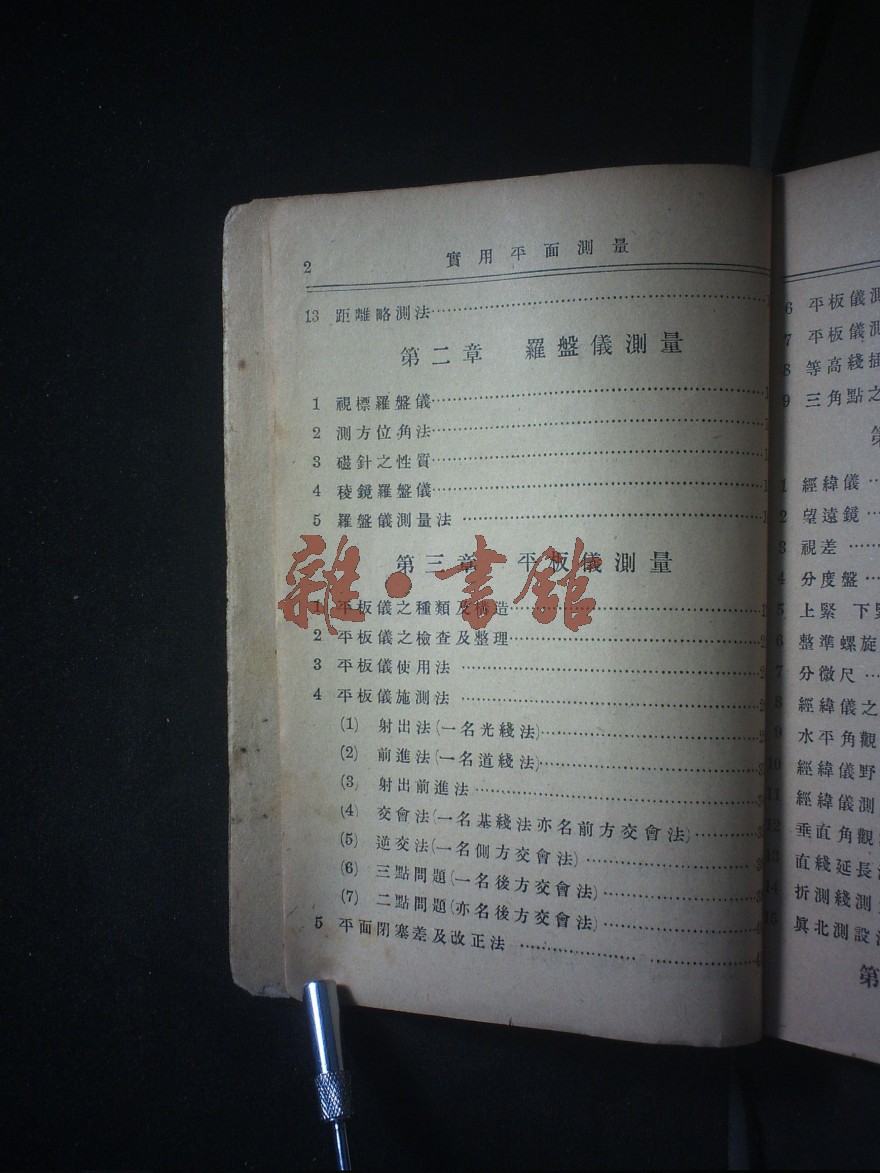 2 實用平面測量
13 距離略測法
第二章 羅盤儀測量
1 視標羅盤儀
2 測方位角法
3 磁針之性質
4 稜鏡羅盤儀
5 羅盤儀測量法
第三章 平板儀測量
1 平板儀之種類及構造
2 平板儀之檢查及整理
3 平板儀使用法
4 平板儀施測法
(1) 射出法(一名光綫法)
(2) 前進法(一名道綫法)
(3) 射出前進法
(4) 交會法(一名基綫法亦名前方交會法)
(5) 逆交法(一名側方交會法)
(6) 三點問題(一名後方交會法)
(7) 二點問題(亦名後方交會法)
5 平面閉塞差及改正法
雜·書館
6 平板儀測
7 平板儀測
8 等高綫插
9 三角點之
第
1 經緯儀
2 望遠鏡
3 視差
4 分度盤
5 上緊 下緊
6 整準螺旋
7 分微尺
8 經緯儀之
9 水平角觀
10 經緯儀野
11 經緯儀測
12 垂直角觀
13 直綫延長
14 折測綫測
15 眞北測設
第